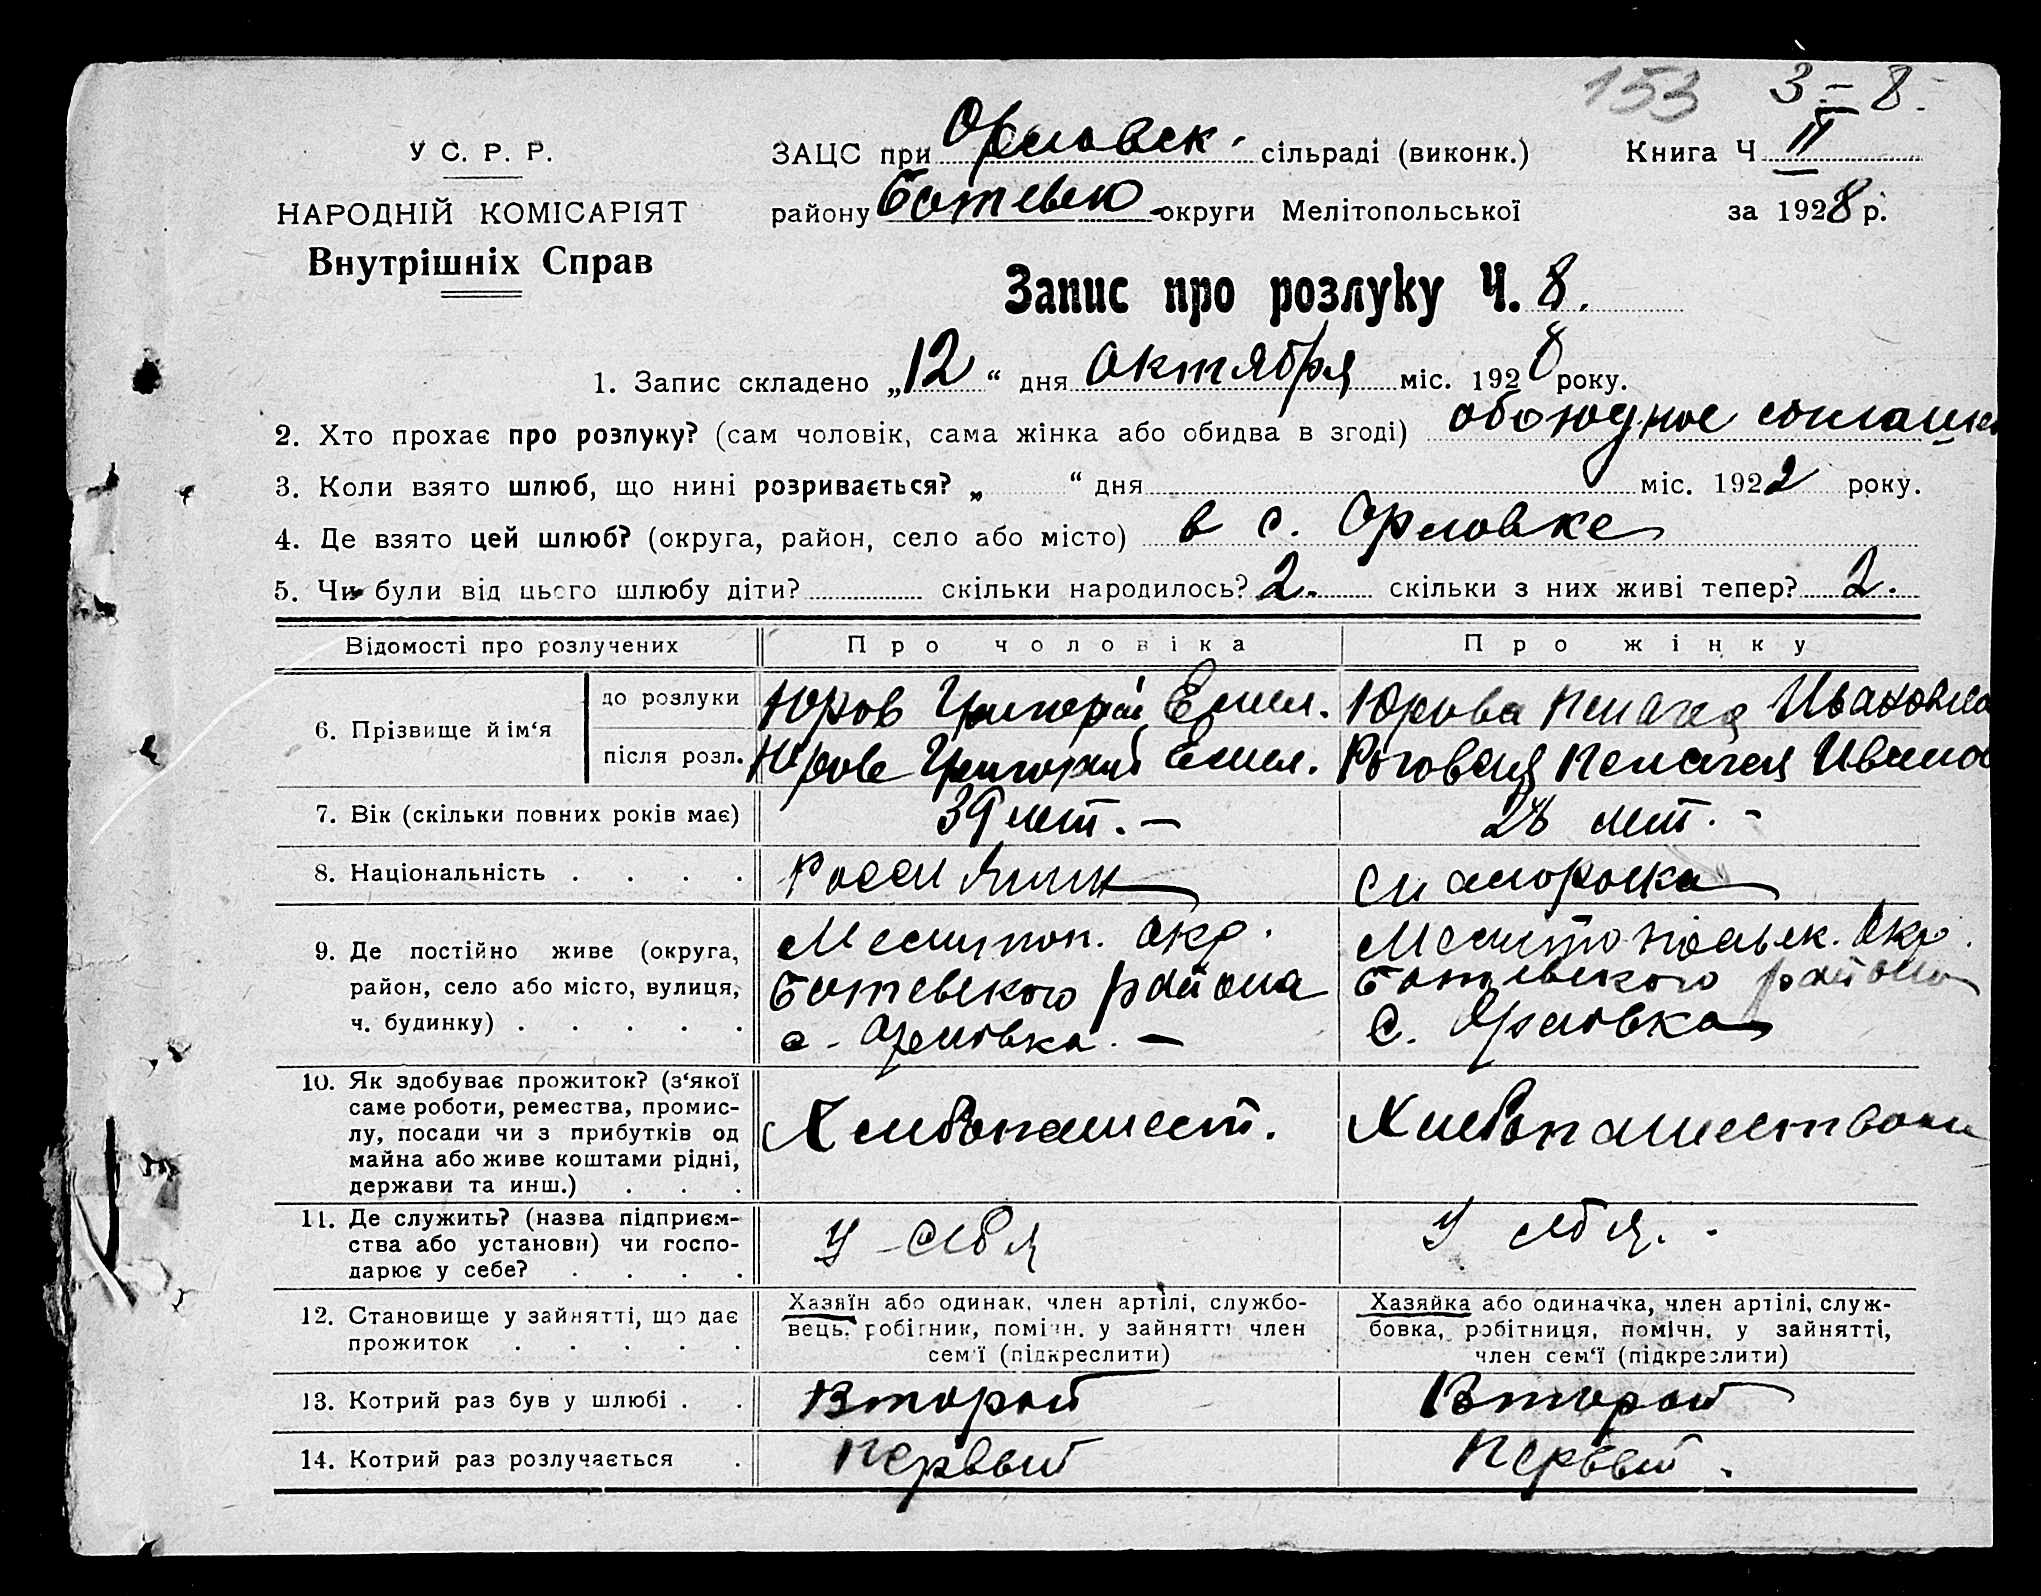 153 3 – 8.
У С. Р. Р.
ЗАЦС при Орловск. сільраді (виконк.) Книга Ч II
НАРОДНІЙ КОМІСАРІЯТ
району округи Мелітопольської за 1928 р.
Внутрішніх Справ
Запис про розлуку Ч. 8.
1. Запис складено „12“ дня Октября міс. 1928 року.
2. Хто прохає про розлуку? (сам чоловік, сама жінка або обидва в згоді) обоюдное
3. Коли взято шлюб, що нині розривається? „ “ дня міс. 1922 року.
4. Де взято цей шлюб? (округа, район, село або місто) в с. Орловке
5. Чи були від цього шлюбу діти? скільки народилось? 2. скільки з них живі тепер? 2.
Відомості про розлучених Про чоловіка Про жінку
6. Прізвище й ім‘я
до розлуки Юров Григорій Емел. Юрова Пелагея Ивановна
після розл. Юров Григорий Емел. Роговая Пелагея
7. Вік (скільки повних років має) 39 лет. – лет. –
8. Національність . . . .
9. Де постійно живе (округа, Мелитоп. Окр. Мелитопольск. Окр.
район, село або місто, вулиця, Ботевского района Ботевского района
ч. будинку) . . . . . с. Орловка. – С. Орловка
10. Як здобуває прожиток? (з‘якої
саме роботи, ремества, промис-
лу, посади чи з прибутків од Хлебопашест. Хлебопашеством
майна або живе коштами рідні,
держави та инш.) . . .
11. Де служить? (назва підприєм-
ства або установи) чи госпо- У себя У себя.
дарює у себе? . . . .
12. Становище у зайнятті, що дає
прожиток . . . . .
Хазяїн або одинак, член артілі, службо-
вець, робітник, помічн. у зайнятті член
сем‘ї (підкреслити)
Хазяйка або одиначка, член артілі, служ-
бовка, робітниця, помічн. у зайнятті,
член сем‘ї (підкреслити)
13. Котрий раз був у шлюбі . . Второй Второй
14. Котрий раз розлучається . Первый Первый.